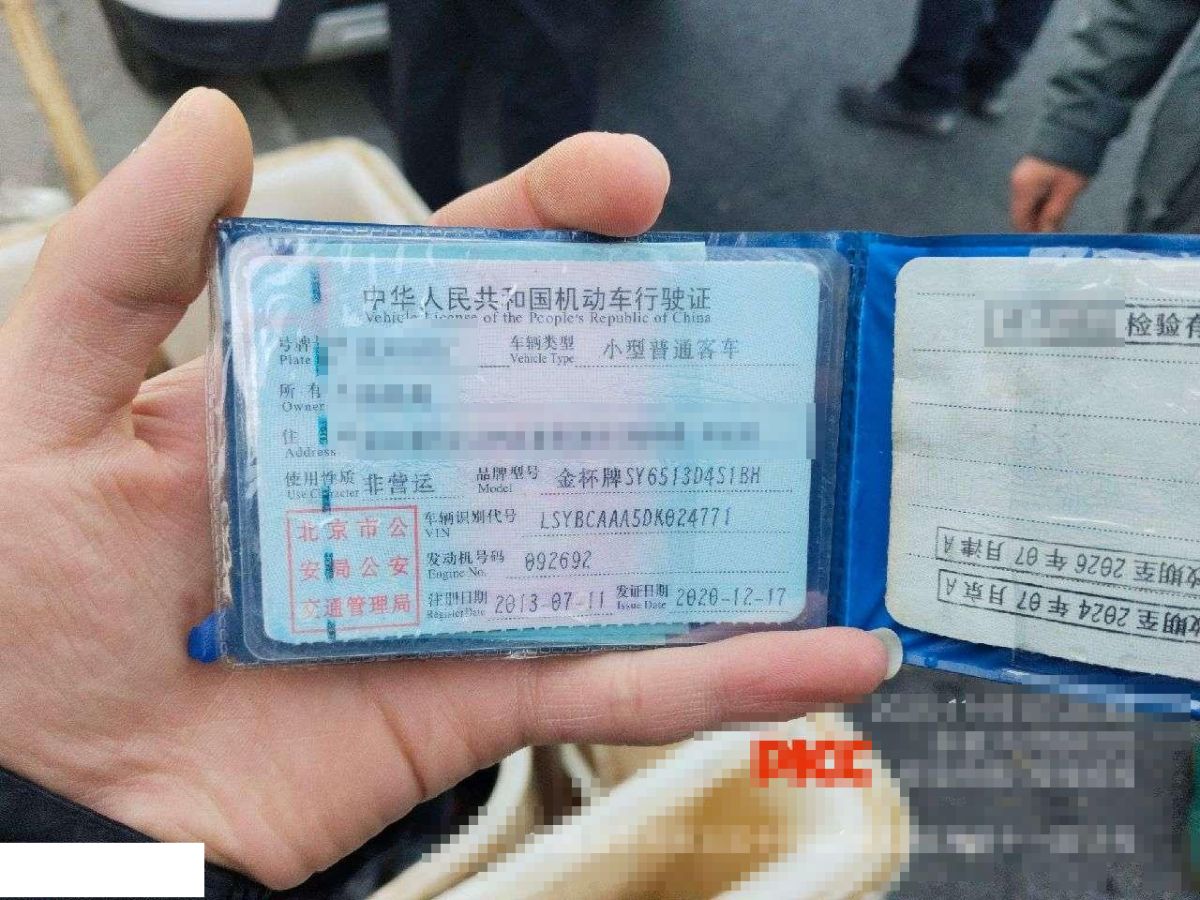 中华人民共和国机动车行驶证
Vehicle License of the People's Republic of China
号牌
Plate
车辆类型
Vehicle Type
小型普通客车
所有
Owner
住
Address
使用性质
Use Character
非营运
品牌型号
Model
金杯牌SY6513D4S1BH
北京市公
安局公安
交通管理局
车辆识别代号
VIN
LSYBCAAA5DK024771
发动机号码
Engine No.
092692
注册日期
Register Date
2013-07-11
发证日期
Issue Date
2020-12-17
检验有
效期至2026年07月津A
效期至2024年07月京A
PICC